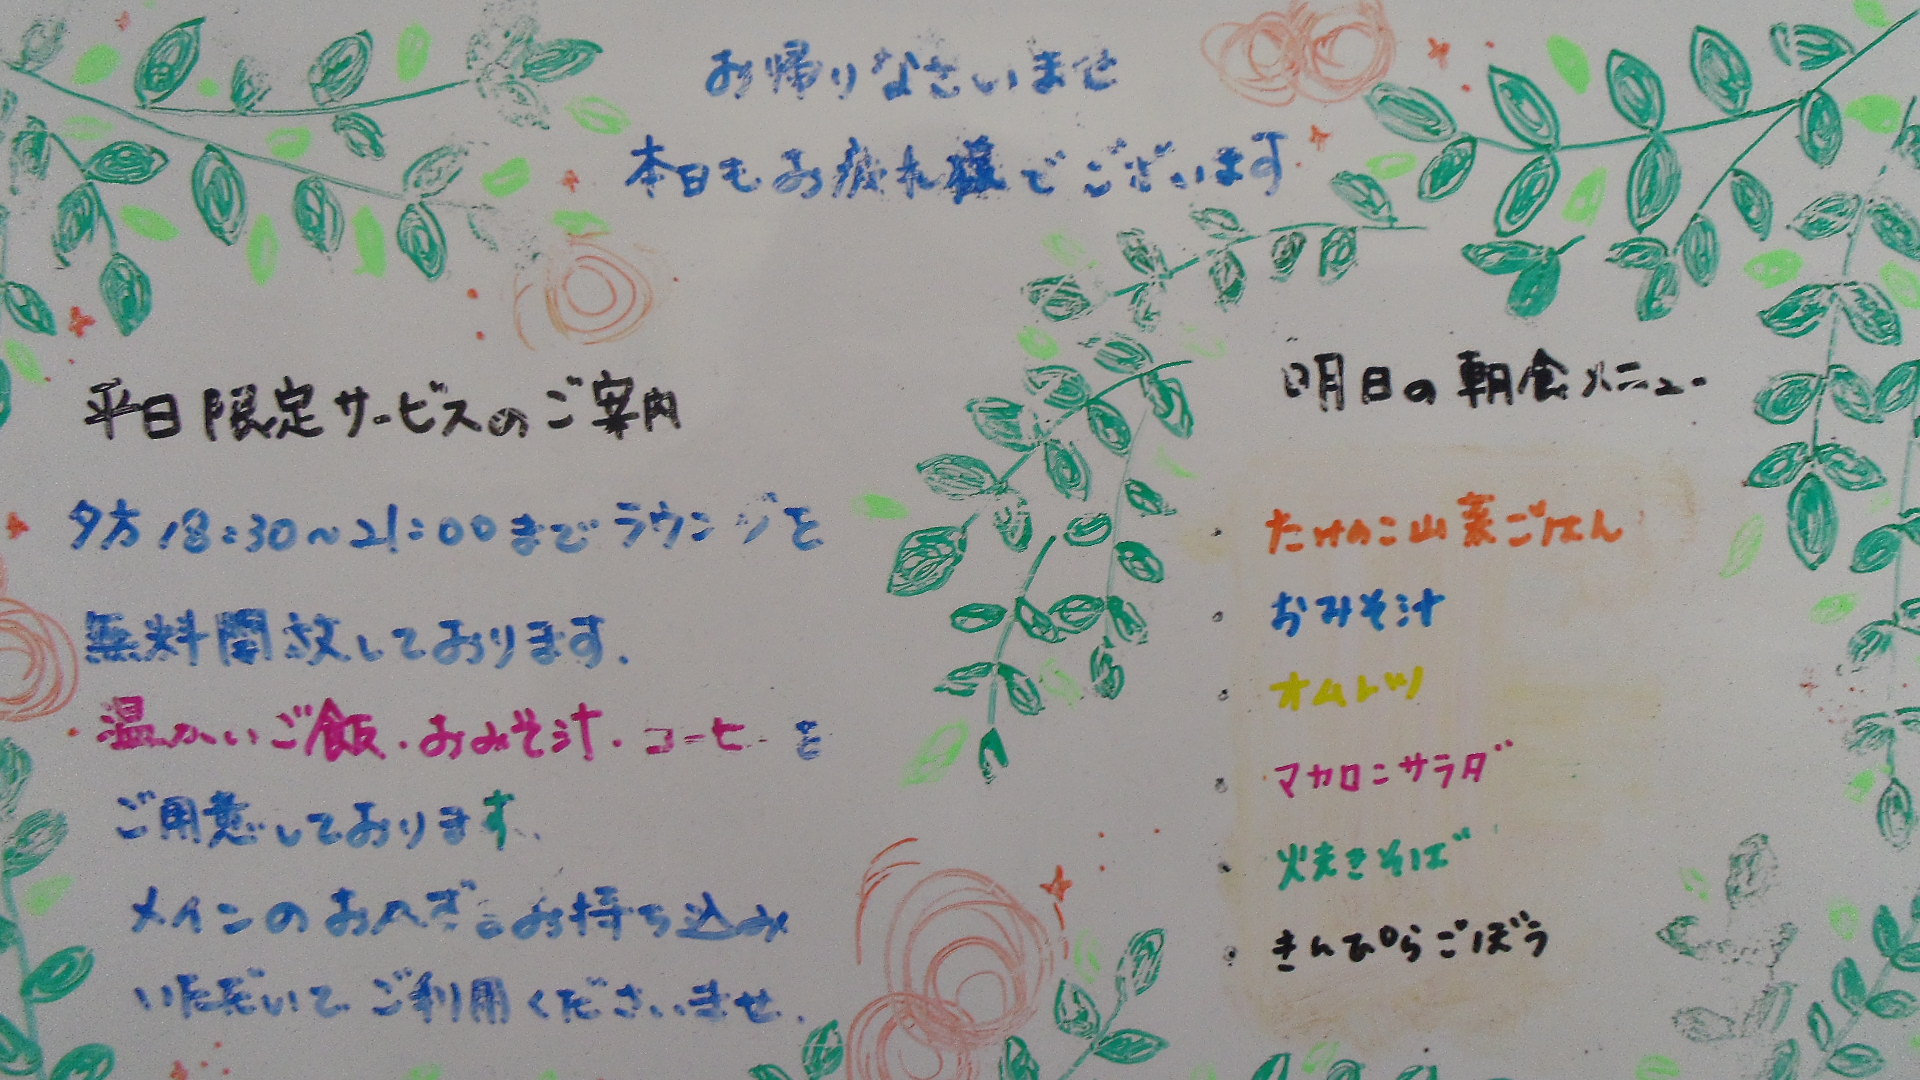 お帰りなさいませ
本日もお疲れ様でございます
平日限定サービスのご案内
夕方18:30~21:00までラウンジを
無料開放しております。
温かいご飯・おみそ汁・コーヒーを
ご用意しております。
メインのおかずをお持ち込み
いただいてご利用くださいませ。
明日の朝食メニュー
・たけのこ山菜ごはん
・おみそ汁
・オムレツ
・マカロニサラダ
・焼きそば
・きんぴらごぼう